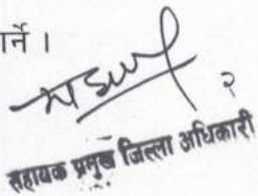 र्ने ।
२
सहायक प्रमुख जिल्ला अधिकारी